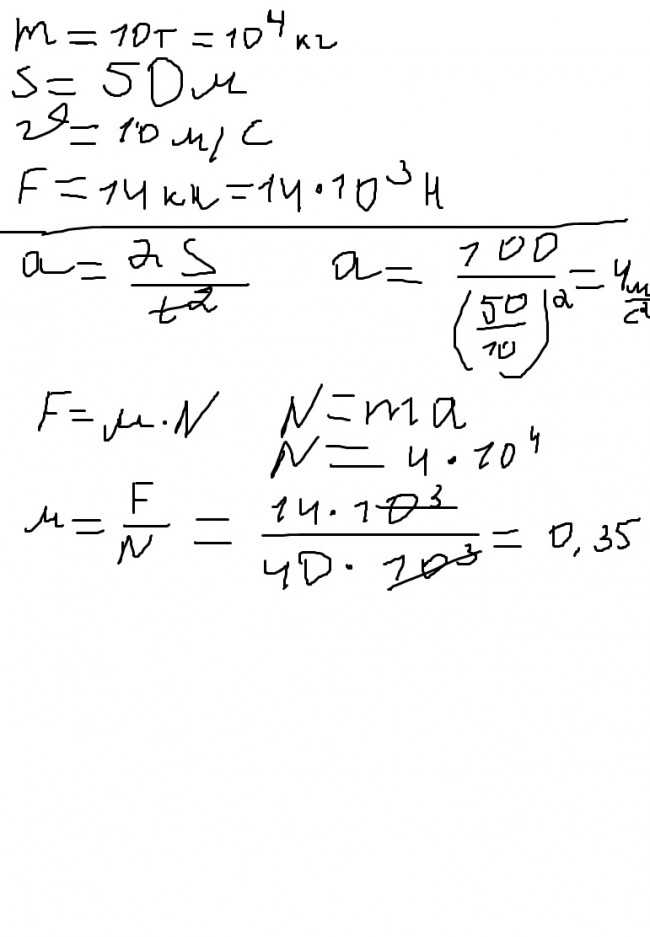 m = 10т = 10⁴ кг
S = 50 м
v = 10 м/с
F = 14 кн = 14·10³ Н
a = 2S/t² a = 100/(50/10)² = 4 м/с²
F = μ·N N = ma
N = 4·10⁴
μ = F/N = 14·10³/40·10³ = 0,35